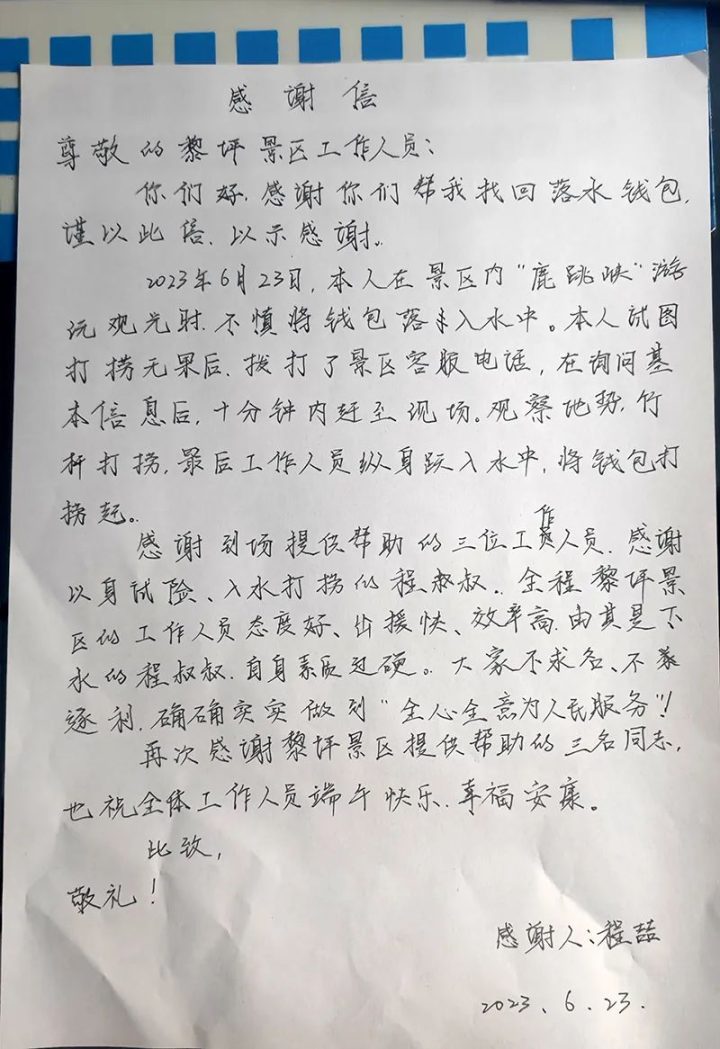 感谢信
尊敬的黎坪景区工作人员：
你们好。感谢你们帮我找回落水钱包，
谨以此信，以示感谢。
2023年6月23日，本人在景区内“鹿跳峡”游
玩观光时，不慎将钱包落入水中。本人试图
打捞无果后，拨打了景区客服电话，在询问基
本信息后，十分钟内赶至现场。观察地势，竹
杆打捞，最后工作人员纵身跃入水中，将钱包打
捞起。
感谢到场提供帮助的三位工作人员，感谢
以身试险、入水打捞的程叔叔。全程黎坪景
区的工作人员态度好、出援快、效率高，由其是下
水的程叔叔，自身素质过硬。大家不求名、不
逐利，确确实实做到“全心全意为人民服务”！
再次感谢黎坪景区提供帮助的三名同志，
也祝全体工作人员端午快乐，幸福安康。
比致，
敬礼！
感谢人：程喆
2023.6.23.